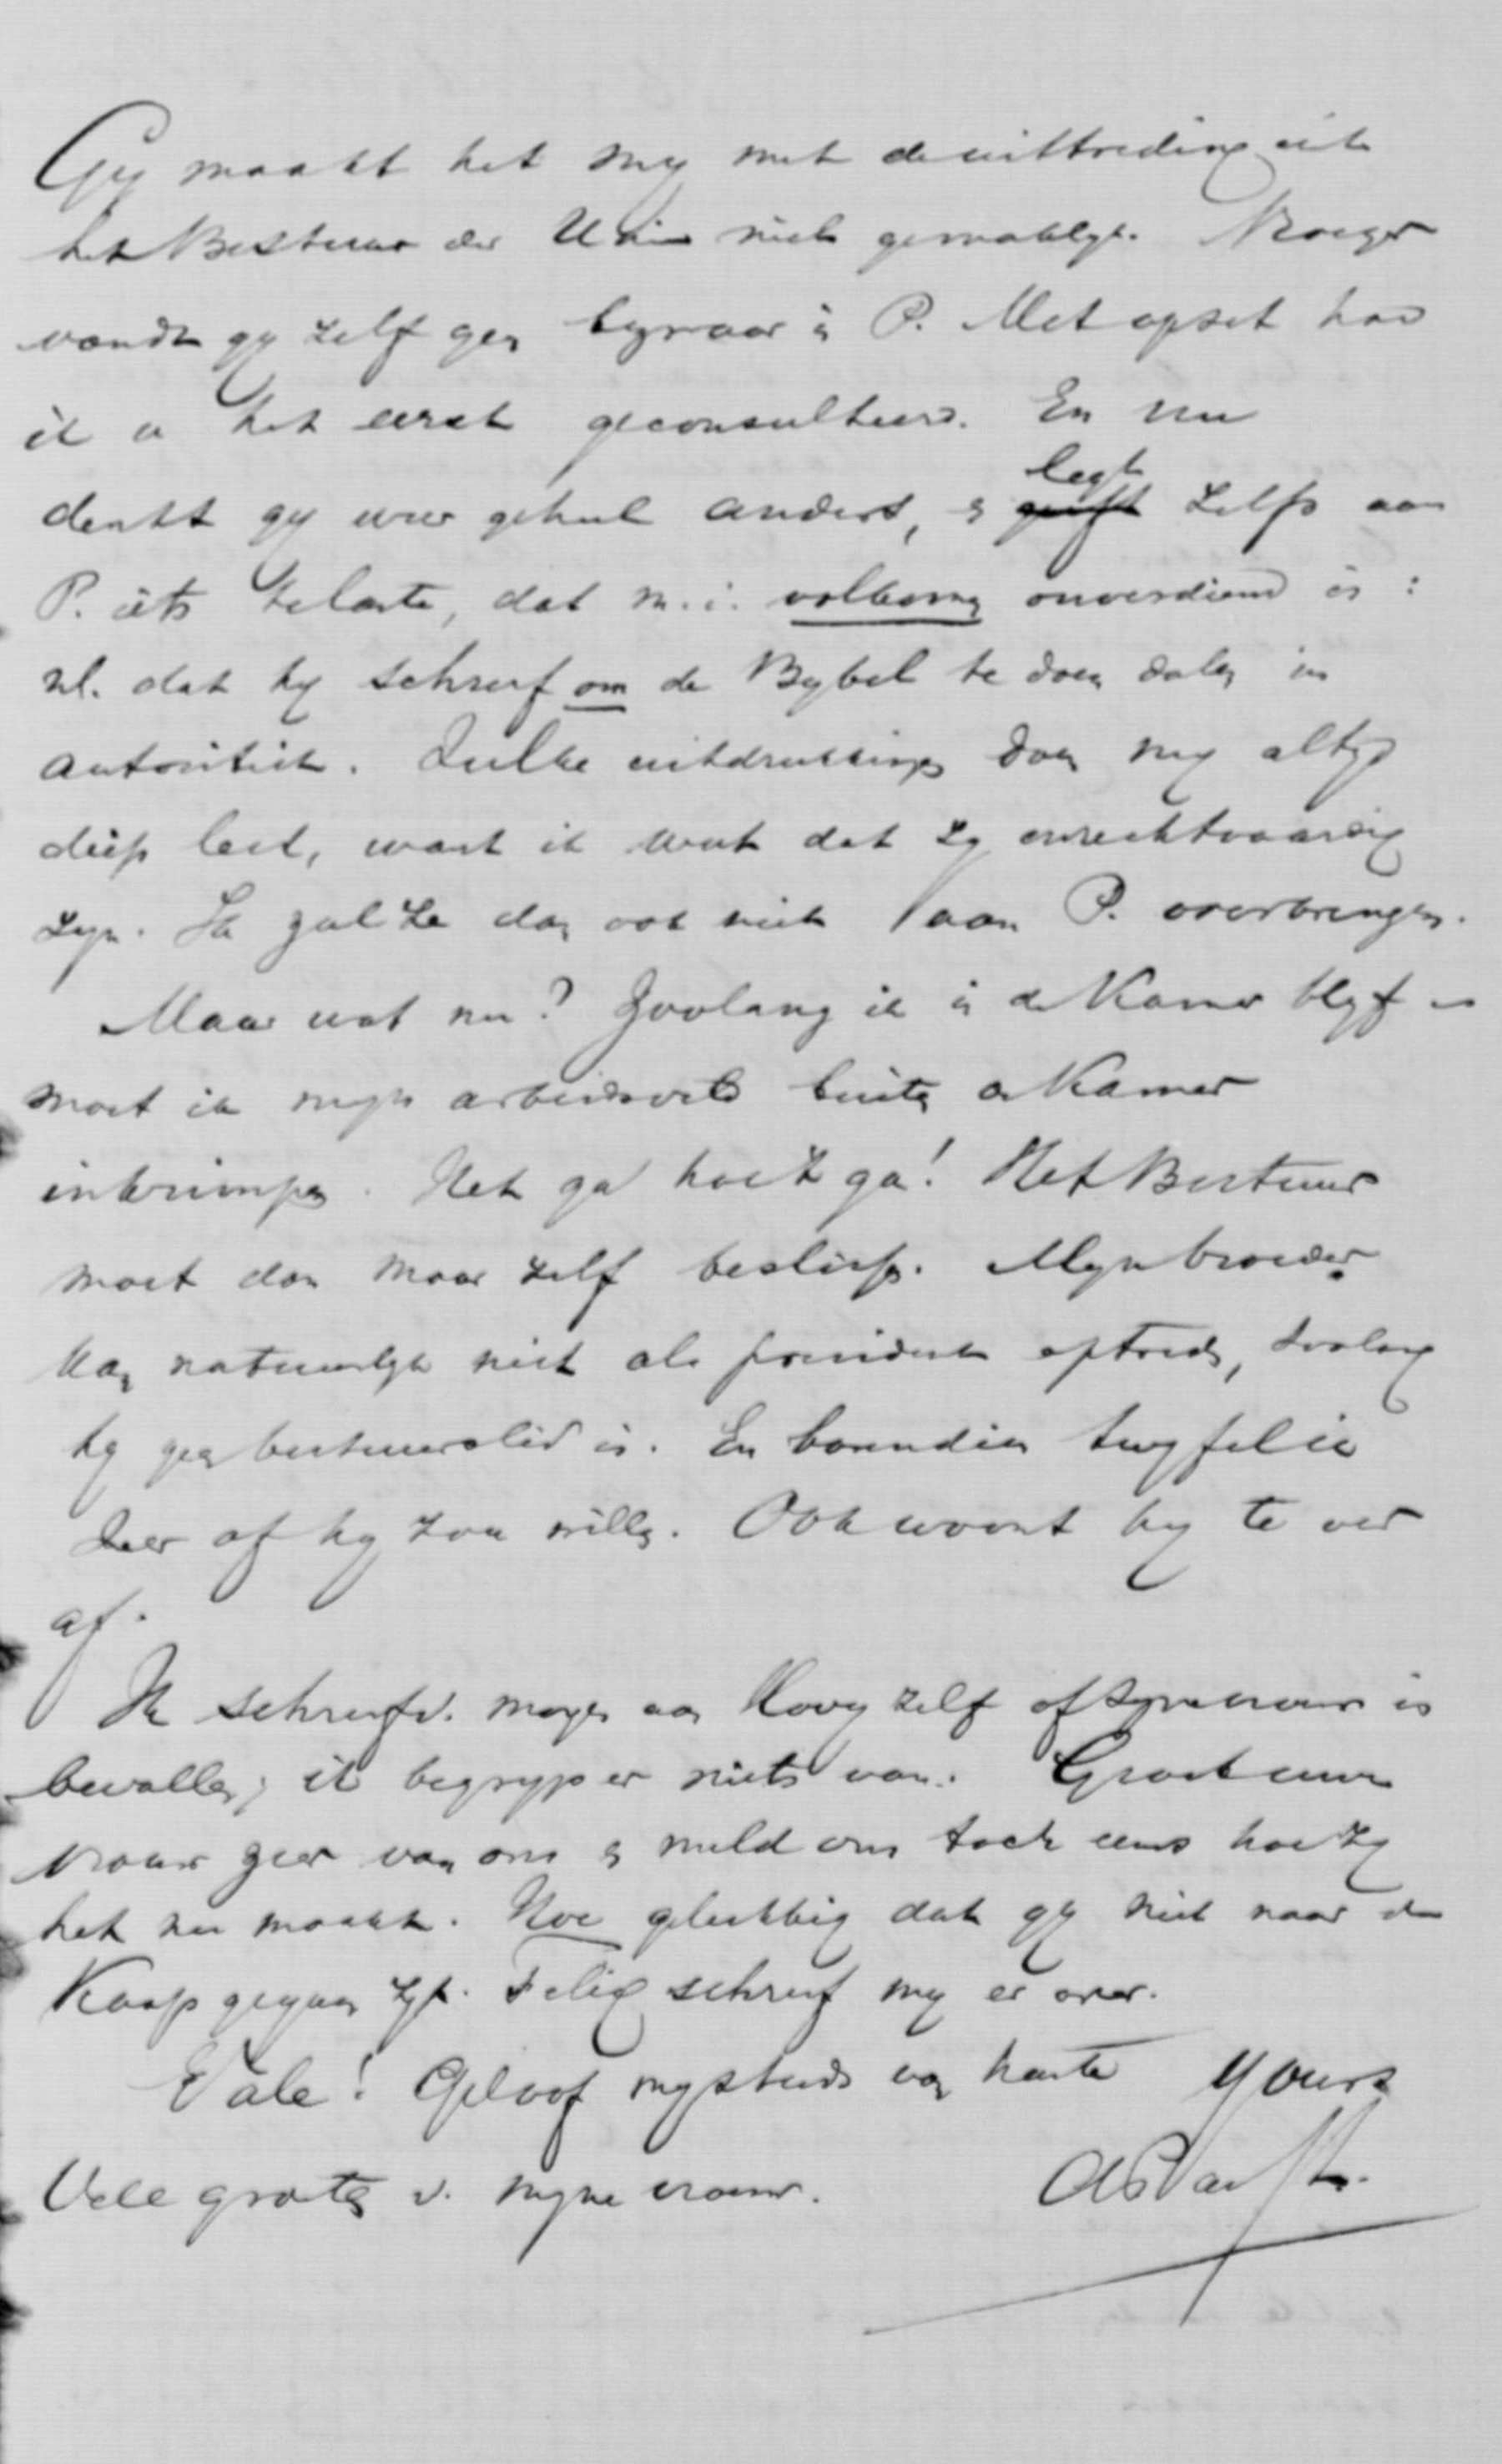 Gij maakt het mij met de uittreding uit
het Bestuur der Unie niet gemakkelijk. Vroeger
vondt gij zelf geen bezwaar in P. Met opzet had
ik u het eerst geconsulteerd. En nu
denkt gij weer geheel anders, en legt zelfs aan
P. iets te laste, dat m.i. volkomen onverdiend is:
nl. dat hij schreef om de Bijbel te doen dalen in
autoriteit. Zulke uitdrukkingen doen mij altijd
diep leed, want ik weet dat ze onrechtvaardig
zijn. Ik zal ze dan ook niet aan P. overbrengen.
Maar wat nu? Zoolang ik in de Kamer blijf
moet ik mijn arbeidsveld buiten de Kamer
inkrimpen. Het ga hoe 't ga! Het Bestuur
moet dan maar zelf beslissen. Mijn broeder
kan natuurlijk niet als president optreden, zoolang
hij geen bestuurslid is. En bovendien twijfel ik
zeer of hij zou willen. Ook woont hij te ver
af.
Ik schreef v. morgen aan Hovy zelf of zijn vrouw is
bevallen; ik begrijp er niets van. Groet uwe
vrouw zeer van ons en meld ons toch eens hoe zij
het nu maakt. Hoe gelukkig dat gij niet naar de
Kaap gegaan zijt. Felix schreef mij er over.
Vale! Geloof mij steeds van harte yours
Vele groeten v. mijne vrouw.